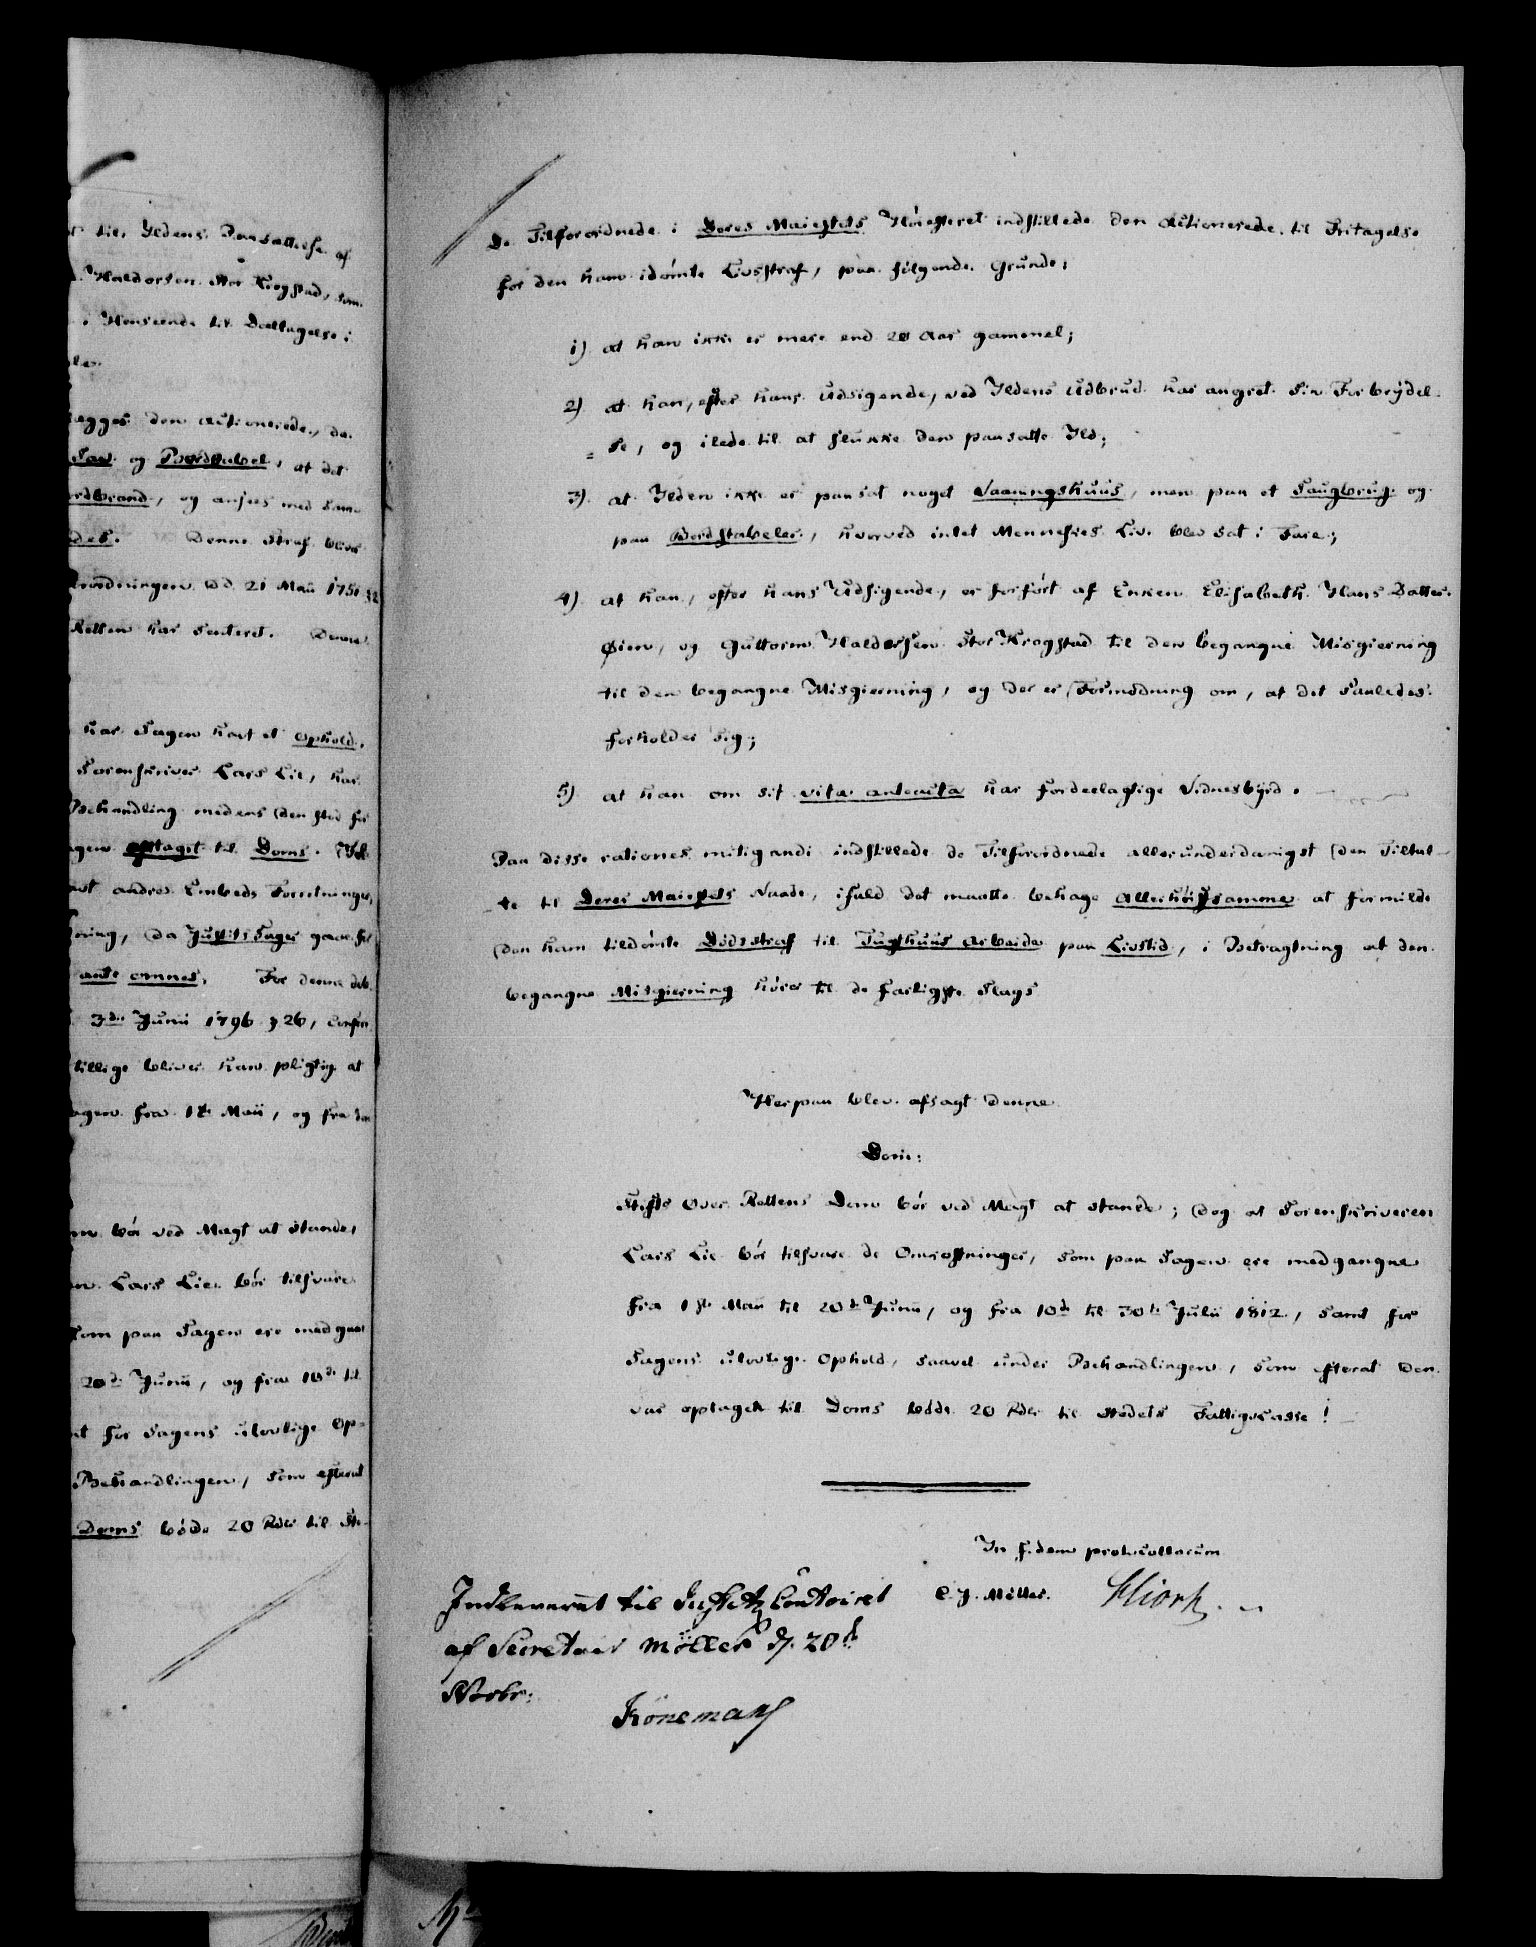 til Ildens Paasættelse af
Haldorsen Stor Krogstad, som
i Henseende til Deeltagelse i
den Actionerede, da
Sav og Bordstabel, at det
ordbrand, og ansees med samme
Denne Straf bliver
ordningen dd. 21 Maii 1751 §2
Retten har senteret. Denne
har Sagen havt et Ophold,
Sorenskriver Lars Lie, har
Behandling medens den stod for
agen optaget til Doms.
andre Embeds Forretninger,
ning, da Justits Sager gaae for
ante omnes. For denne deb
3die Junii 1796 § 26, confr.
tillige bliver han pligtig at
agen fra 1ste Maii, og fra den
bör ved Magt at stande,
Lars Lie bör tilsvare
som paa Sagen ere medgaae
20de Junii, og fra 10de til
for Sagens ulovlige Op=
Behandlingen, som efterat
Doms böde 20 Rdlr til Ste-
De Tilforordnede i Deres Majestets Höiesteret indstillede den Actionerede til Fritagelse
for den ham idömte Livsstraf, paa fölgende Grunde:
1) at han ikke er mere end 20 Aar gammel;
2) at han, efter hans Udsigende, ved Ildens Udbrud har angret sin Forbrydel-
=se, og ilede til at slukke den paasatte Ild;
3) at Ilden ikke er paasat noget Vaaningshuus, men paa et Saugbrug og
paa Bordstabeler, hvorved intet Menneskes Liv blev sat i Fare;
4) at han, efter hans Udsigende, er forfört af Enken Elisabeth Hans Datter
Öien, og Guttorm Haldorsen Stor Krogstad til den begangne Misgierning
til den begangne Misgierning, og der er Formodning om, at det saaledes
forholder sig;
5) at han om sit vita anteacta har fordeelagtige Vidnesbyrd.
Paa disse rationes mitigandi indstillede de Tilforordnede allerunderdanigst den Tiltal-
-te til Deres Majestets Naade, ifald det maatte behage Allerhöistsamme at formilde
den ham tildömte Dödsstraf til Tugthuus Arbeide paa Livstid, i Betragtning at den
begangne Misgierning hörer til de farligste Slags
Herpaa blev afsagt denne
Dom:
Stifts Over Rettens Dom bör ved Magt at stande; dog at Sorenskriveren
Lars Lie bör tilsvare de Omkostninger, som paa Sagen ere medgangne
fra 1ste Maii til 20de Junii, og fra 10de til 30te Julii 1812, samt for
Sagens ulovlige Ophold, saavel under Behandlingen, som efterat den
var optaget til Doms böde 20 Rdlr til Stedets Fattigcasse!
In fidem protocollorum
C. J. Möller. Hiort
Indleveret til Justits Contoiret
af Secretair Möller d. 20de
Novbr:
Könemann